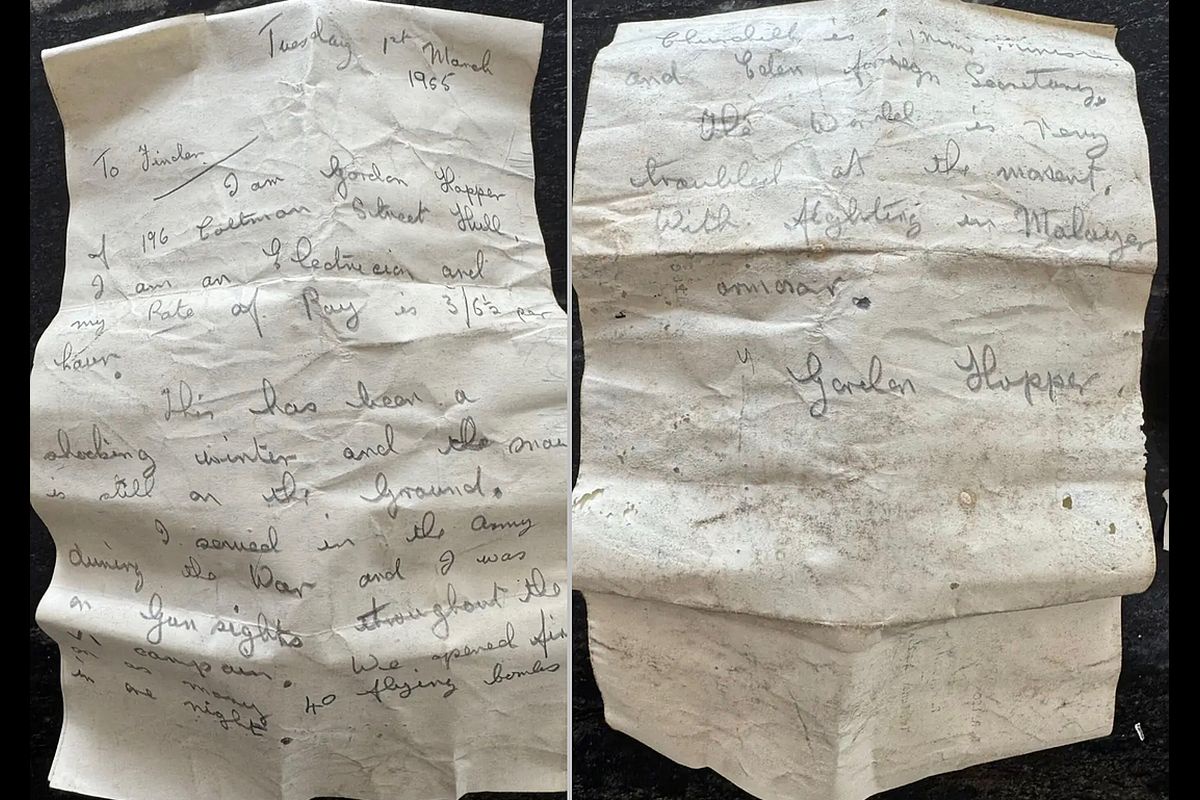 Tuesday 1st March
1955
To Finder.
I am Gordon Hopper
of 196 Coltman Street Hull,
I am an Electrician and
my Rate of Pay is 3/6½ per
hour.
This has been a
shocking winter and the snow
is still on the Ground.
I served in the army
during the War and I was
on Gun sights throughout the
V1 campain. We opened fire
on as many 40 flying bombs
in one night.
Churchill is Prime Minister
and Eden foreign Secretary.
The World is very
troubled at the moment,
With fighting in Malaya
Gordon Hopper.